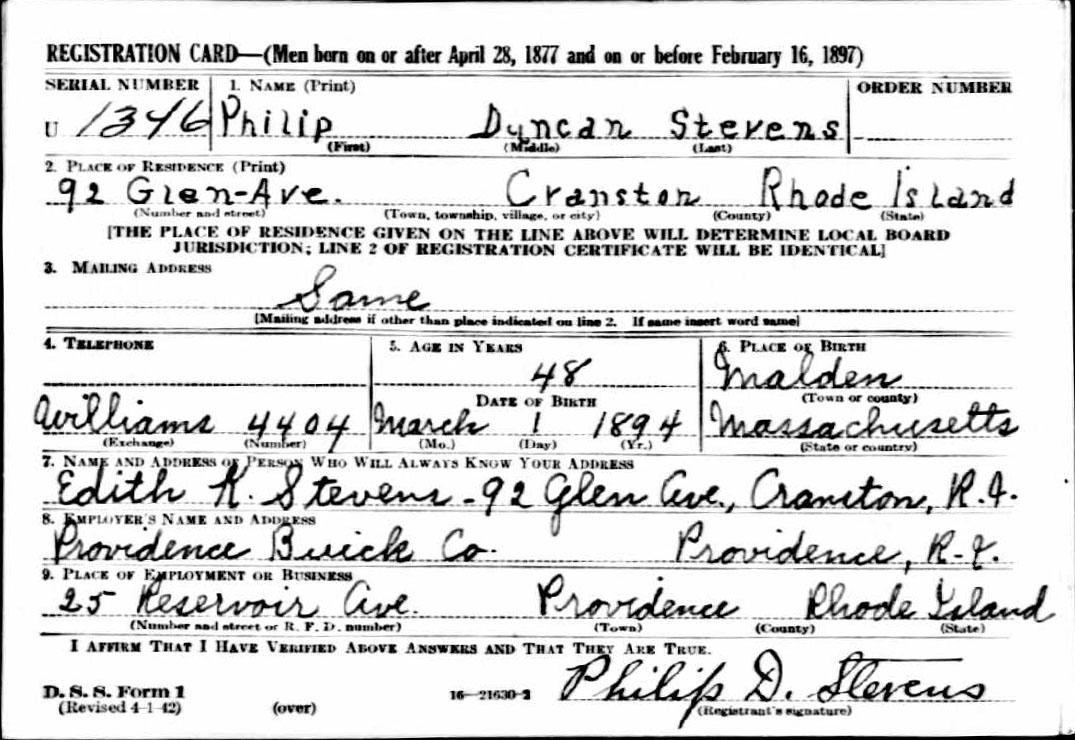 REGISTRATION CARD—(Men born on or after April 28, 1877 and on or before February 16, 1897)
SERIAL NUMBER 1. NAME (Print) ORDER NUMBER
U 1346 Philip Duncan Stevens
(First) (Middle) (Last)
2. PLACE OF RESIDENCE (Print)
92 Glen-Ave. Cranston Rhode Island
(Number and street) (Town, township, village, or city) (County) (State)
[THE PLACE OF RESIDENCE GIVEN ON THE LINE ABOVE WILL DETERMINE LOCAL BOARD
JURISDICTION; LINE 2 OF REGISTRATION CERTIFICATE WILL BE IDENTICAL]
3. MAILING ADDRESS
Same
[Mailing address if other than place indicated on line 2. If same insert word same]
4. TELEPHONE 5. AGE IN YEARS 6. PLACE OF BIRTH
48 Malden
DATE OF BIRTH (Town or county)
Williams 4404 March 1 1894 Massachusetts
(Exchange) (Number) (Mo.) (Day) (Yr.) (State or country)
7. NAME AND ADDRESS OF PERSON WHO WILL ALWAYS KNOW YOUR ADDRESS
Edith K. Stevens - 92 Glen Ave., Cranston, R.I.
8. EMPLOYER'S NAME AND ADDRESS
Providence Buick Co. Providence, R.I.
9. PLACE OF EMPLOYMENT OR BUSINESS
25 Reservoir Ave. Providence Rhode Island
(Number and street or R. F. D. number) (Town) (County) (State)
I AFFIRM THAT I HAVE VERIFIED ABOVE ANSWERS AND THAT THEY ARE TRUE.
D. S. S. Form 1 16—21630-2 Philip D. Stevens
(Revised 4-1-42) (over) (Registrant's signature)